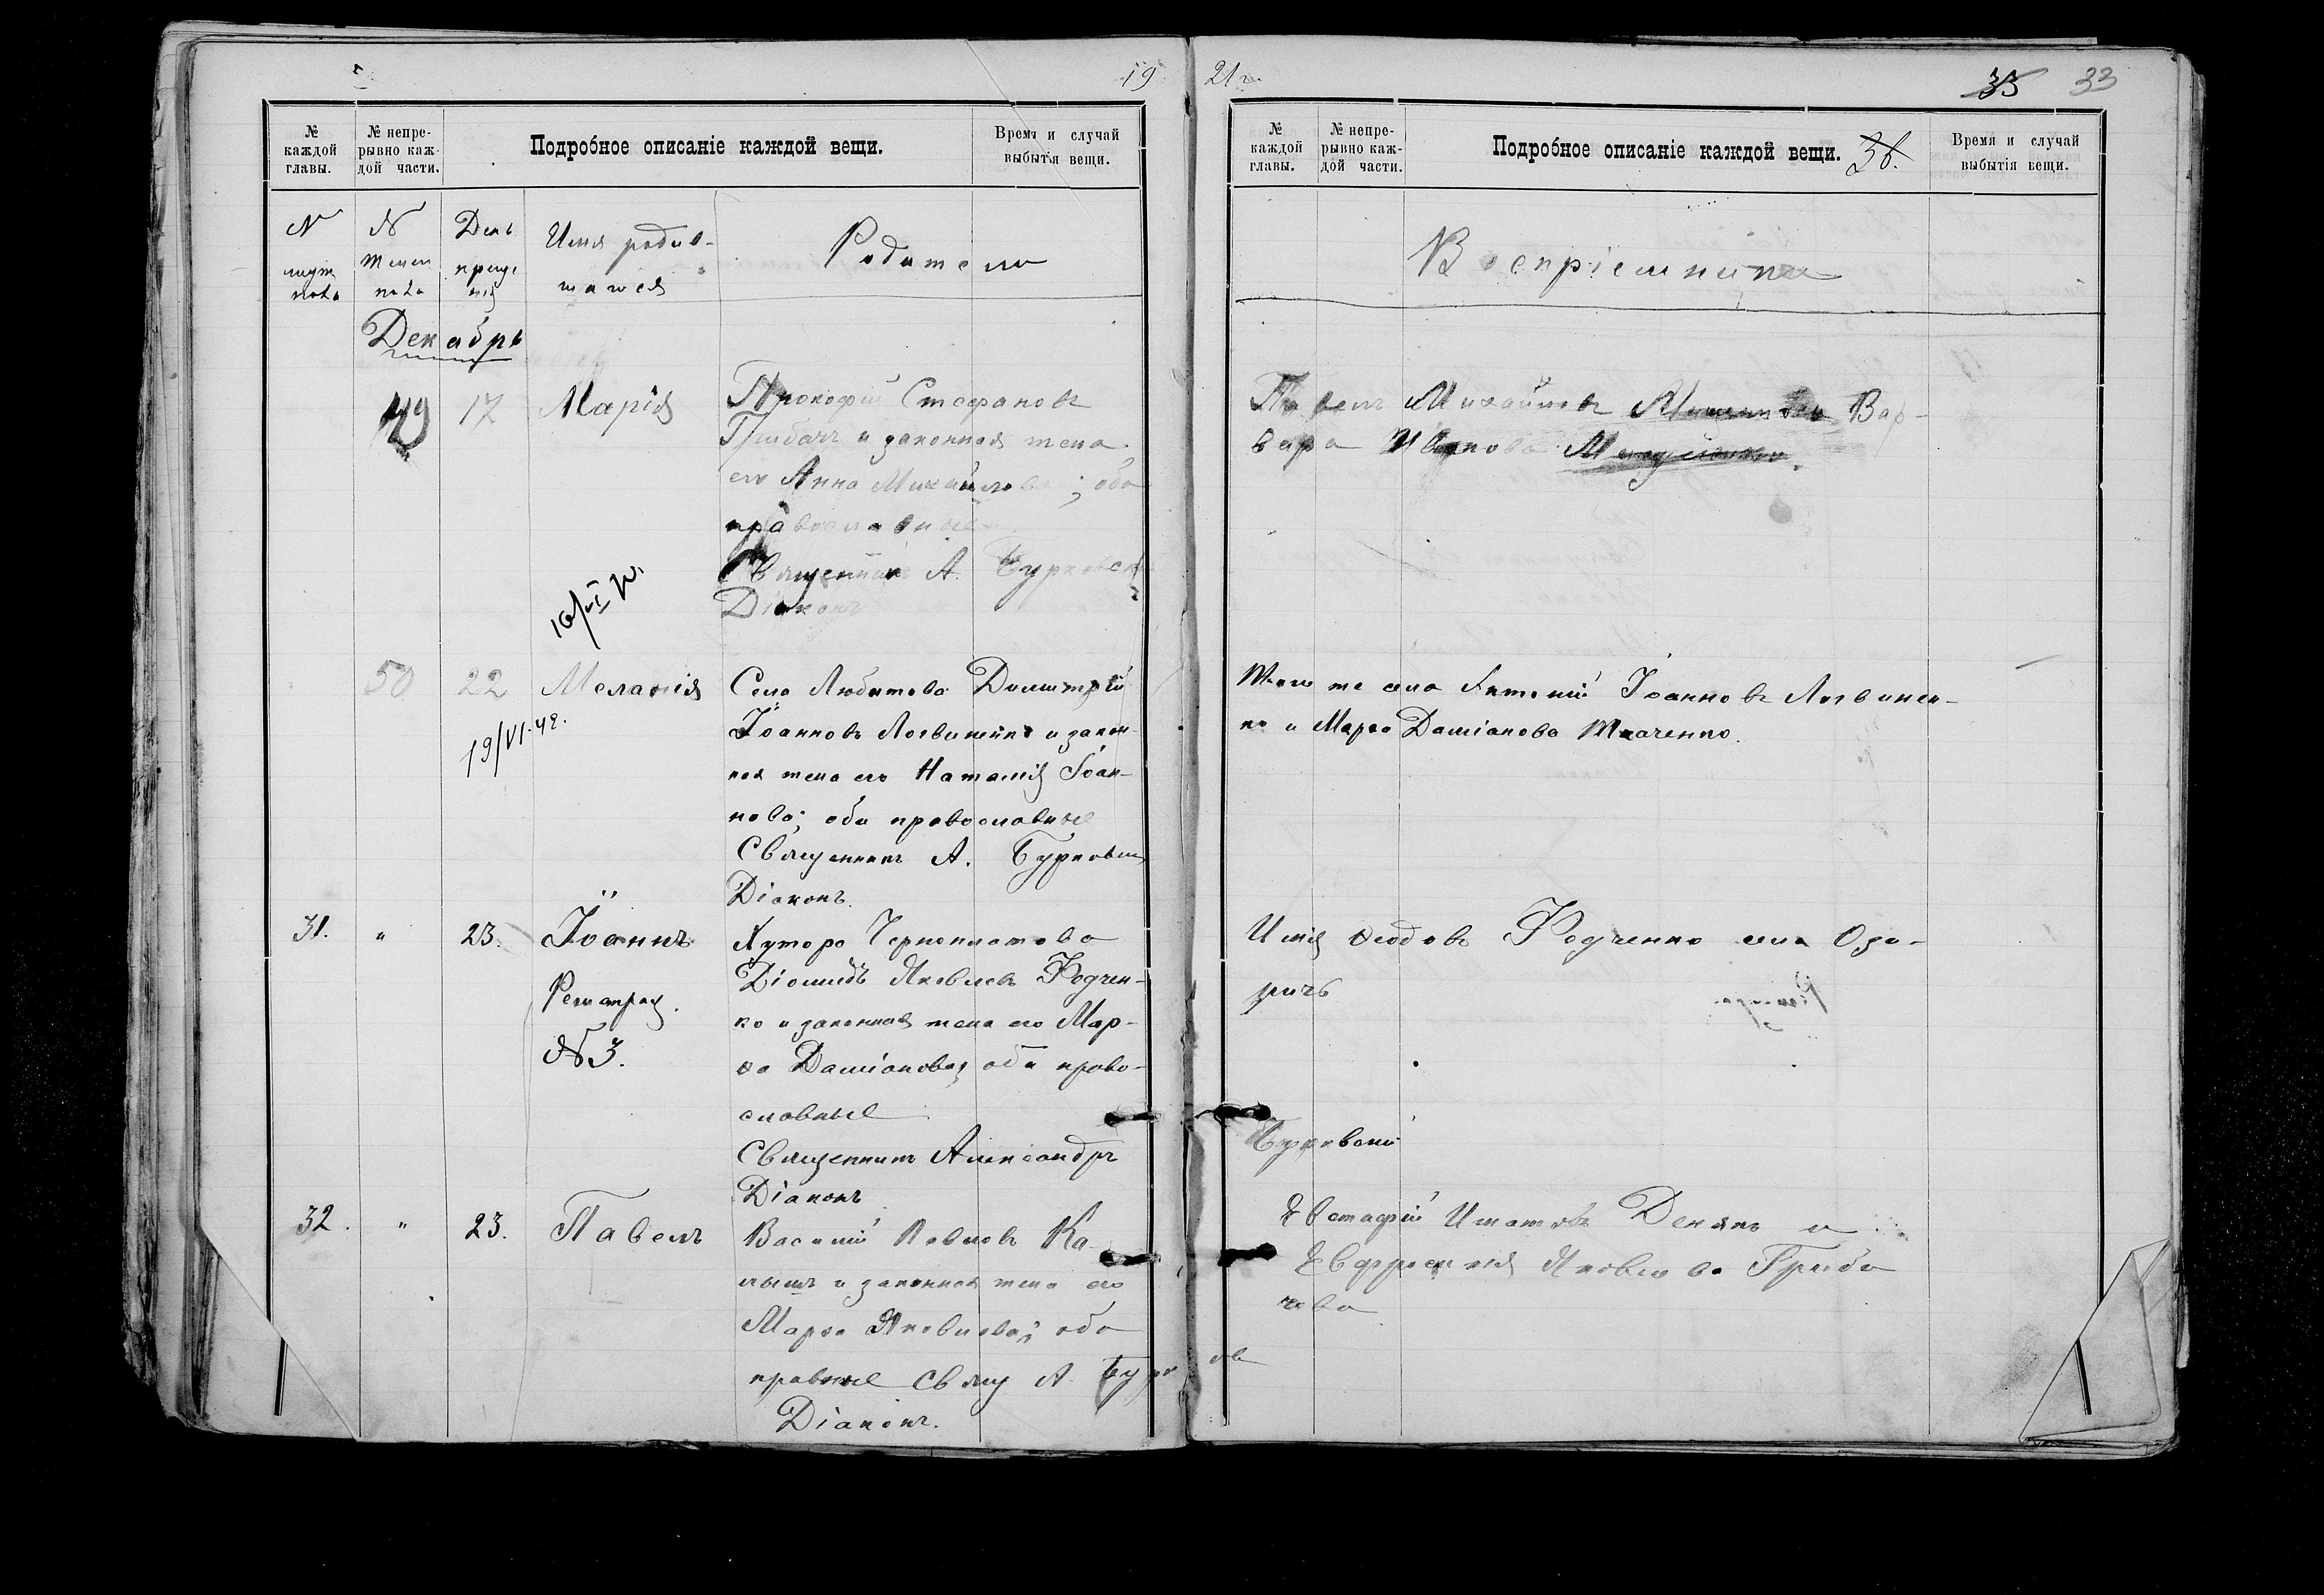 19
№ каждой главы.
№ непрерывно каждой части.
Подробное описаніе каждой вещи.
Время и случай выбытія вещи.
N
мужт
пола
N
женск
пола
День
крещенія
Имя родив-
шагося
Родители
Декабрь
49 17 Марія
Прокофій Стефановъ
Грибачъ и законная жена
его Анна Михайлова; оба
православные
Священникъ А. Бурковск
Діаконъ
50 22 Меланія
19/VI-42.
Село Любитово Димитрій
Іоанновъ Логвиненко и закон-
ная жена его Наталія Іоан-
нова; оба православные
Священникъ А. Бурковск
Діаконъ.
31. " 23. Іоаннъ
Регистрац.
N 3.
Хутора Черноплатова
Діомидъ Яковлевъ Федчен-
ко и законная жена его Мар-
ѳа Даміанова; оба право-
славные
Священникъ Александръ
Діаконъ
32. " 23. Павелъ
Василій Павловъ Ка-
лышъ и законная жена его
Марѳа Яковлева; оба
правосные Свящ А. Бурков
Діаконъ.
21 г.
35 33
№ каждой главы.
№ непрерывно каждой части.
Подробное описаніе каждой вещи. 36.
Время и случай выбытія вещи.
Воспріемники
Павелъ Михайловъ Вар-
вара Иванова
Того же села Антоній Іоанновъ Логвинен-
ко и Марѳа Даміанова Ткаченко.
Илія Ѳеодовъ Федченко села Оза-
ричъ
Бурковскій
Евстафій Игнатовъ Деканъ и
Евфросинія Яковлева Гриба
чева